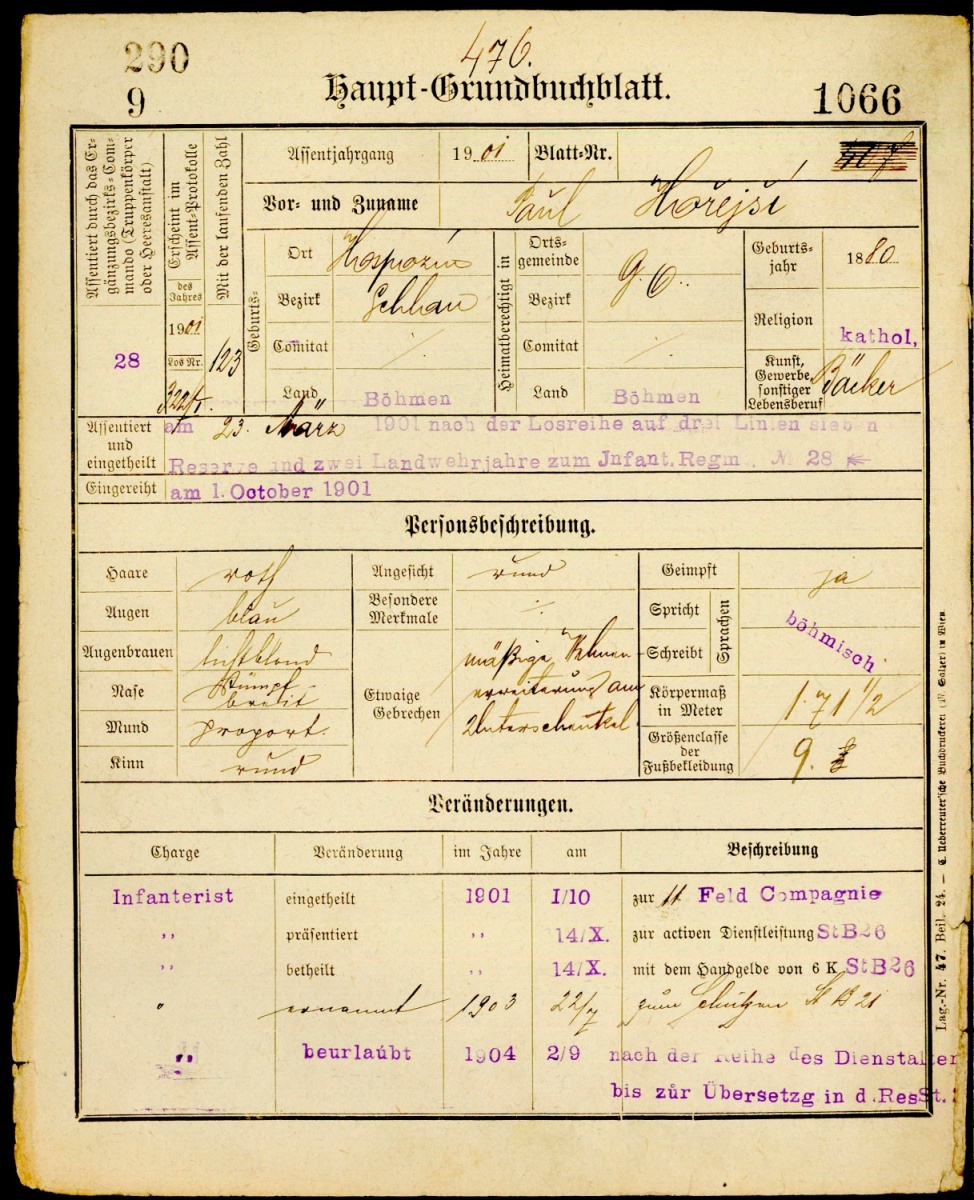 290
476.
9
Haupt-Grundbuchblatt.
1066
Assentiert durch das Ergänzungsbezirks-Commando (Truppenkörper oder Heeresanstalt)
28
Erscheint im Assent-Protokolle
des Jahres
1901
Los Nr.
322/I.
Mit der laufenden Zahl
123
Assentjahrgang 1901 Blatt-Nr.
Vor- und Zuname Paul Hořejší
Geburts-
Ort Hospozin
Bezirk Schlan
Comitat ./.
Land Böhmen
Heimatberechtigt in
Ortsgemeinde G.O..
Bezirk
Comitat ./.
Land Böhmen
Geburtsjahr 1880
Religion kathol,
Kunst, Gewerbe, sonstiger Lebensberuf Bäcker
Assentiert und eingetheilt
am 23. März 1901 nach der Losreihe auf drei Linien sieben
Reserve und zwei Landwehrjahre zum Jnfant. Regm. № 28
Eingereiht am 1. October 1901
Personsbeschreibung.
Haare roth
Augen blau
Augenbrauen lichtblond
Nase stumpf breit
Mund proport.
Kinn rund
Angesicht rund
Besondere Merkmale ./.
Etwaige Gebrechen
mäßige Venen-
erweiterung am
Unterschenkel
Geimpft ja
Spricht
Schreibt
Sprachen
böhmisch
Körpermaß in Meter 1.71 1/2
Größenclasse der Fußbekleidung 9.
Veränderungen.
Charge Veränderung im Jahre am Beschreibung
Infanterist eingetheilt 1901 1/10 zur 11 Feld Compagnie
,, präsentiert ,, 14/X. zur activen Dienstleistung StB26
,, betheilt ,, 14/X. mit dem Handgelde von 6 K StB26
" ernannt 1903 22/7 zum Schützen St B 21
,, beurlaubt 1904 2/9 nach der Reihe des Dienstalter
bis zur Übersetzg in d. Res St.
Lag.-Nr. 47. Beil. 24. — C. Ueberreuter'sche Buchdruckerei (M. Salzer) in Wien.